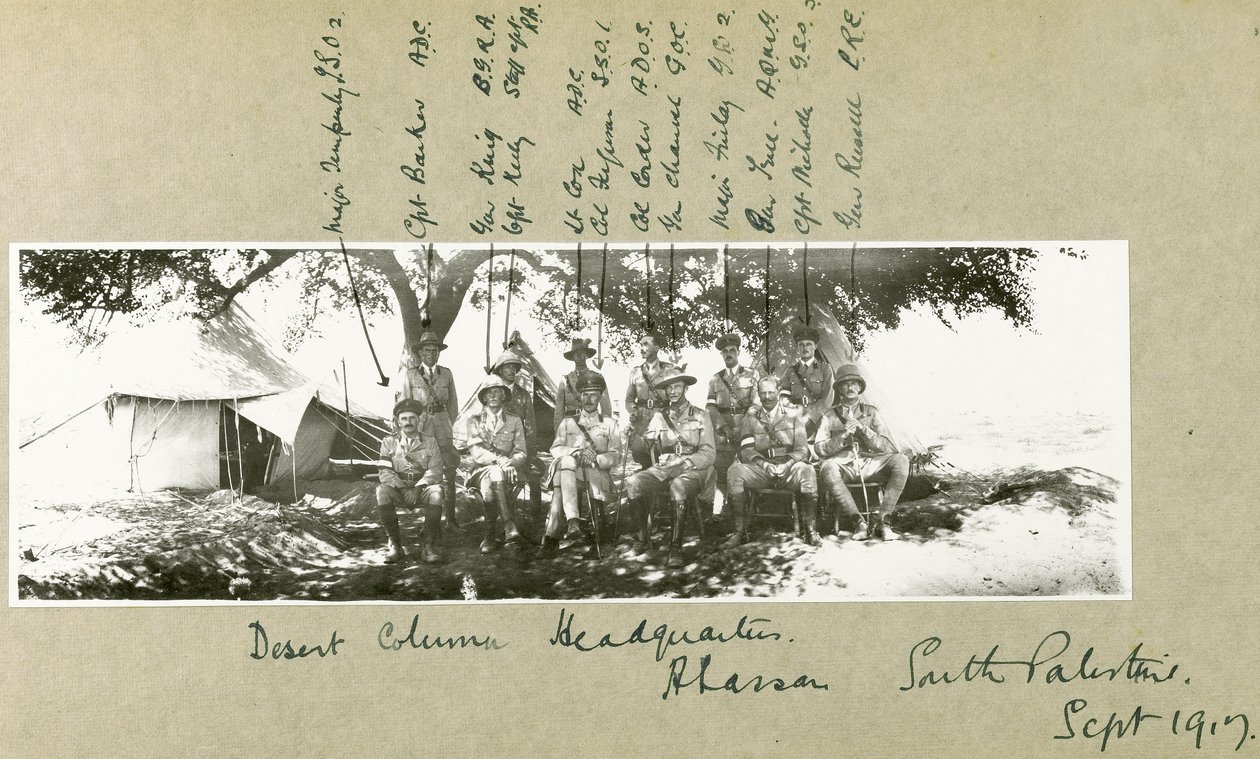 Major Temperly G.S.O 2.
Cpt Barker A.D.C.
Gen King B.G.R.A.
Cpt Staff Cpt. RA.
Lt Cox A.D.C.
Col G.S.O. 1.
Col Corder A.D.O.S.
Gen Chauvel G.O.C.
Major Finlay G.S.O 2.
Gen
Cpt Nichols G.S.O. 3
Gen Russell C.R.E.
Desert Column Headquarters.
Abassan South Palestine.
Sept 1917.